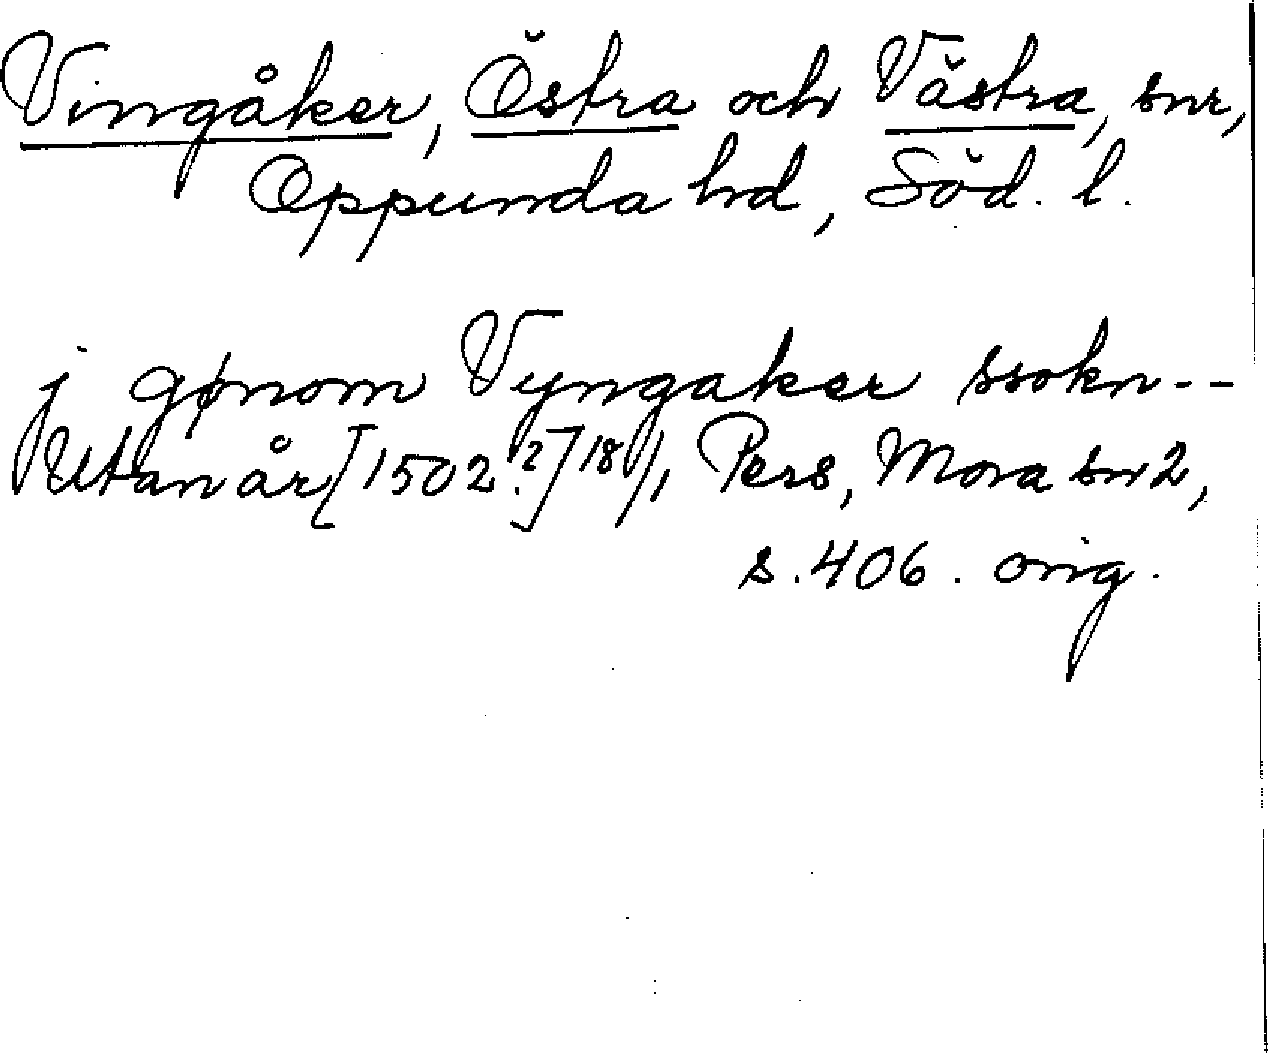 Vingåker, Östra och Västra, snr,
Oppunda hd, Söd. l.
j gønom Vyngaker ssokn--
Utan år [1502.?] 18/1, Pers, Mora sn 2,
s. 406. orig.